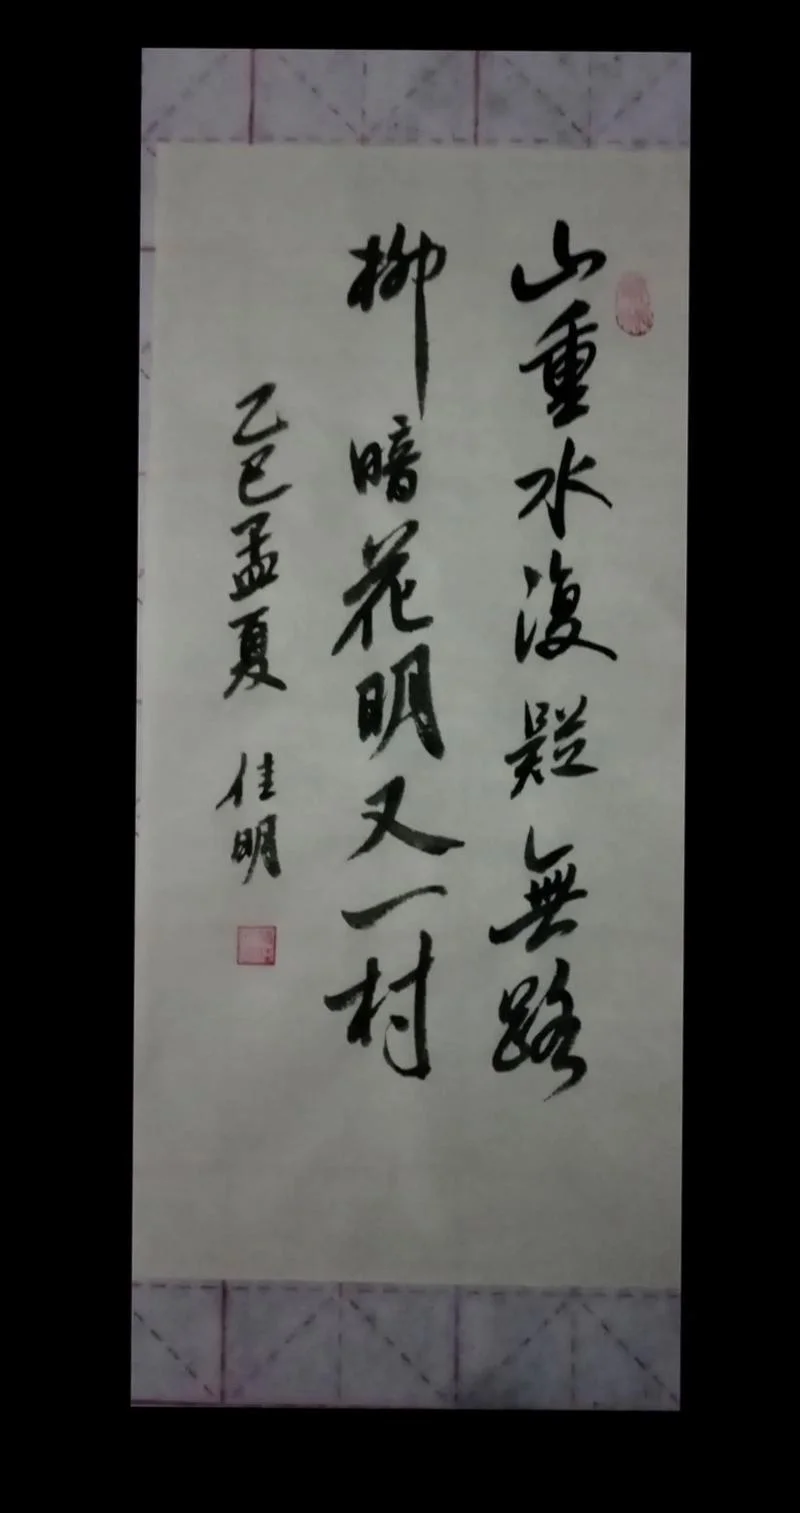 山重水復疑無路
柳暗花明又一村
乙巳孟夏 佳明